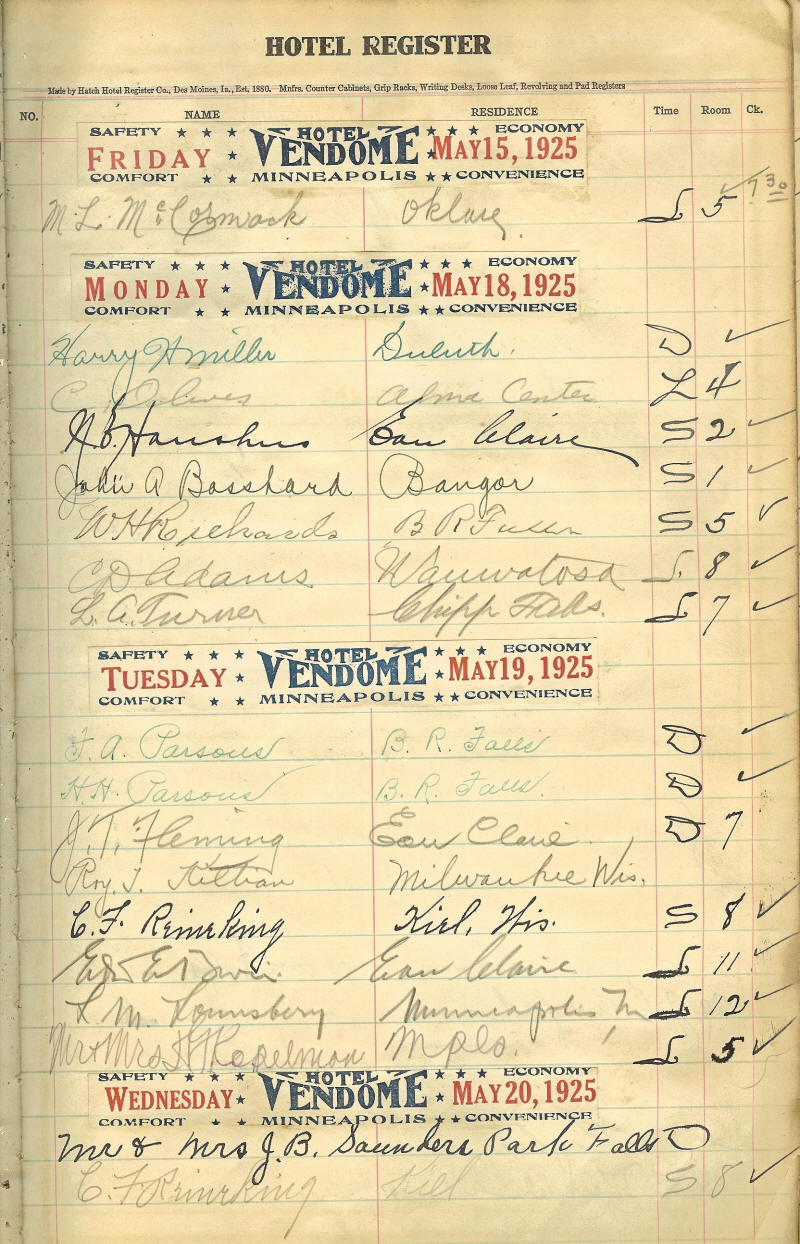 HOTEL REGISTER
Made by Hatch Hotel Register Co., Des Moines, Ia., Est. 1880. Mnfrs. Counter Cabinets, Grip Racks, Writing Desks, Loose Leaf, Revolving and Pad Registers
NO. NAME RESIDENCE Time Room Ck.
SAFETY HOTEL ECONOMY
FRIDAY VENDOME MAY 15, 1925
COMFORT MINNEAPOLIS CONVENIENCE
M. L. McCormack L 5 7 30
SAFETY HOTEL ECONOMY
MONDAY VENDOME MAY 18, 1925
COMFORT MINNEAPOLIS CONVENIENCE
Harry H Miller Duluth. D
C. Alma Center L 4
Eau Claire S 2
John A Bosshard Bangor S 1
W H Richards B R S 5
C D Adams Wauwatosa L. 8
L. A. Turner Chipp Falls. L 7
SAFETY HOTEL ECONOMY
TUESDAY VENDOME MAY 19, 1925
COMFORT MINNEAPOLIS CONVENIENCE
F. A. Parsons B. R. Falls D
H. H. Parsons B. R. Falls. D
J. T. Fleming Eau Claire D 7
Roy. T. Killian Milwaukee Wis.
C. F. Reineking Kiel, Wis. S 8
Eau Claire L 11
L M. Lounsbery Minneapolis L 12
Mr & Mrs Mpls. L 5
SAFETY HOTEL ECONOMY
WEDNESDAY VENDOME MAY 20, 1925
COMFORT MINNEAPOLIS CONVENIENCE
Mr & Mrs J. B. Saunders Park Falls D
C. F. Reineking Kiel S 8